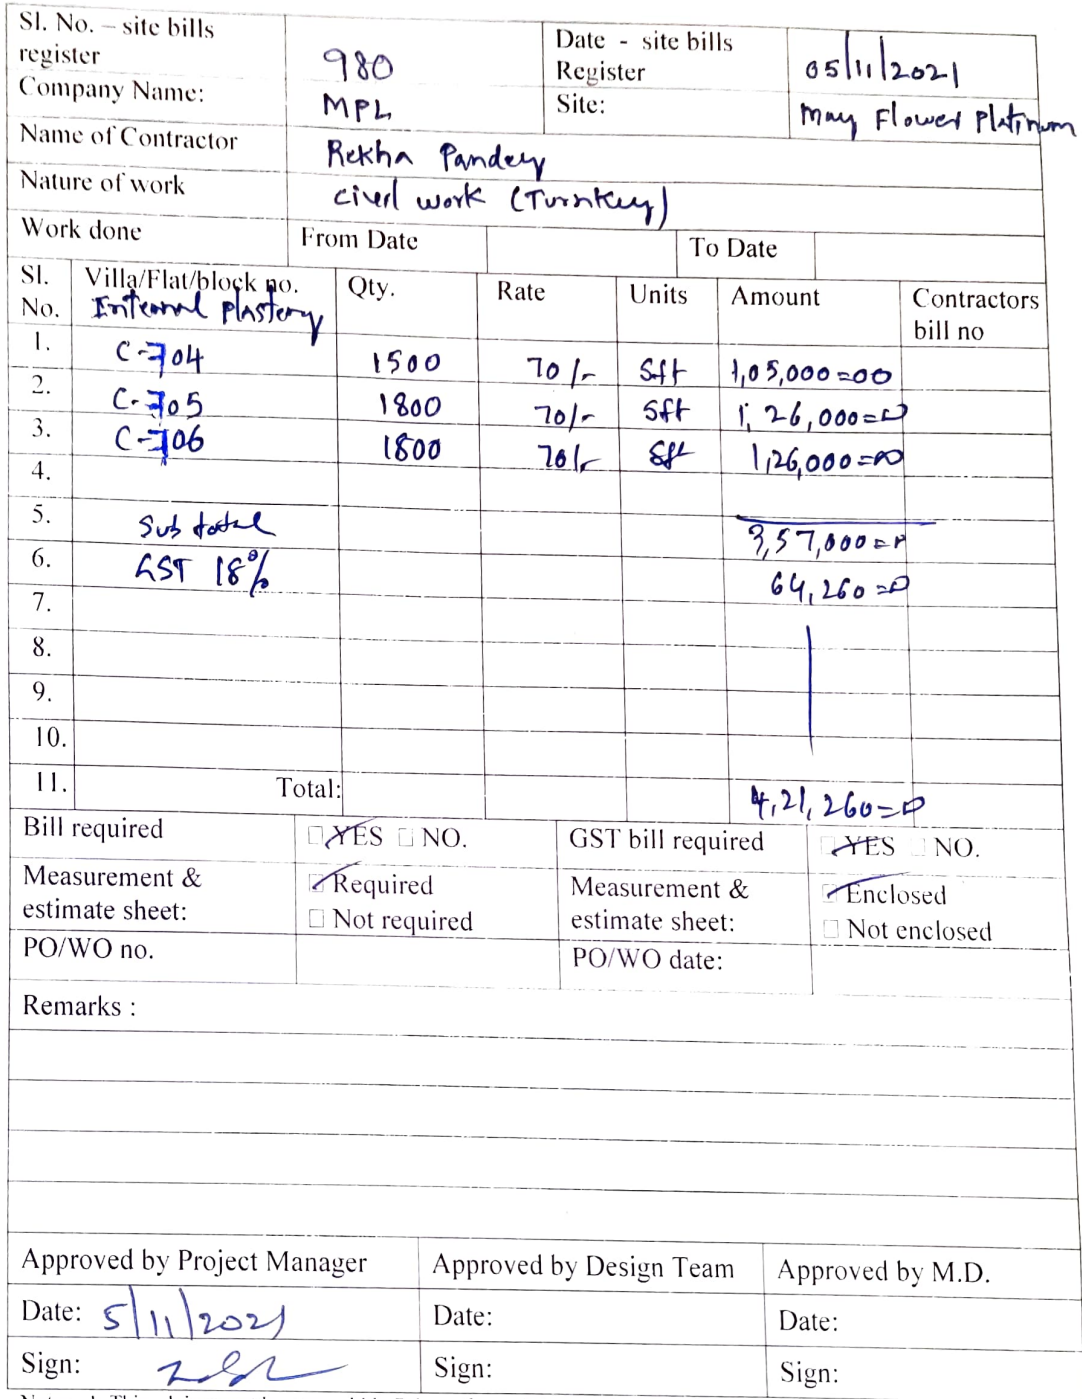 Sl. No. – site bills register 980 Date - site bills Register 05/11/2021
Company Name: MPL Site: May Flower Platinum
Name of Contractor Rekha Pandey
Nature of work civil work (Turnkey)
Work done From Date To Date
Sl. No. Villa/Flat/block no. Qty. Rate Units Amount Contractors bill no
Internal plastery
1. C-704 1500 70/- Sft 1,05,000=00
2. C-705 1800 70/- Sft 1,26,000=00
3. C-706 1800 70/- Sft 1,26,000=00
4.
5. Sub total 3,57,000=0
6. GST 18% 64,260=0
7.
8.
9.
10.
11. Total: 4,21,260=0
Bill required YES NO. GST bill required YES NO.
Measurement & estimate sheet: Required Not required Measurement & estimate sheet: Enclosed Not enclosed
PO/WO no. PO/WO date:
Remarks :
Approved by Project Manager Approved by Design Team Approved by M.D.
Date: 5/11/2021 Date: Date:
Sign: Sign: Sign: